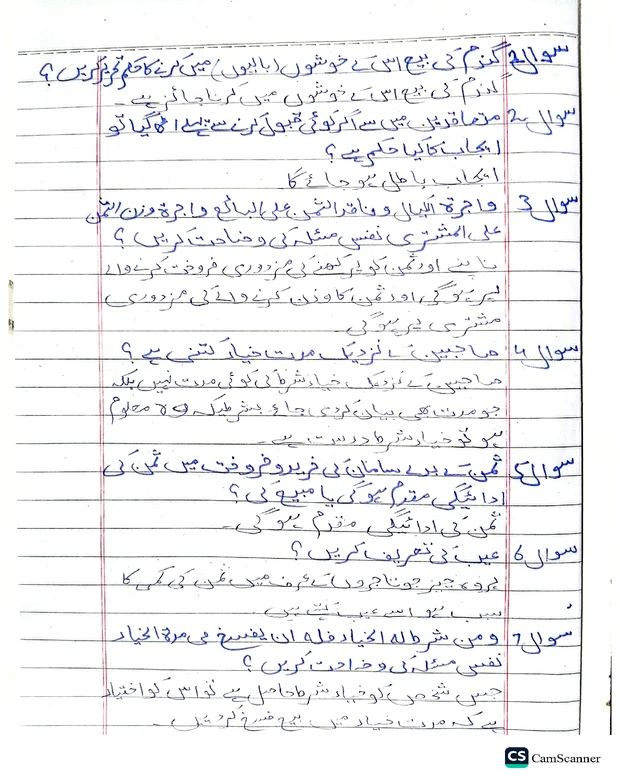 سوال 1 گندم کی بیع اس کے خوشوں (بالیوں) میں کرنے کا حکم تحریر کریں؟
گندم کی بیع اس کے خوشوں میں کرنا جائز ہے۔
سوال 2 متعاقدین میں سے اگر کوئی قبول کرنے سے پہلے اٹھ گیا تو
ایجاب کا کیا حکم ہے؟
ایجاب باطل ہو جائے گا
سوال 3 واجرۃ الکیال وناقد الثمن علی البائع واجرۃ وزن الثمن
علی المشتری نفس مسئلہ کی وضاحت کریں؟
ناپنے اور ثمن کو پرکھنے کی مزدوری فروخت کرنے والے
پر ہو گی اور ثمن کا وزن کرنے والے کی مزدوری
مشتری پر ہو گی۔
سوال 4 صاحبین کے نزدیک مدت خیار کتنی ہے؟
صاحبین کے نزدیک خیار شرط کی کوئی مدت نہیں بلکہ
جو مدت بھی بیان کردی جائے بشرطیکہ وہ معلوم
ہو تو خیار شرط درست ہے۔
سوال 5 ثمن کے بدلے سامان کی خرید و فروخت میں ثمن کی
ادائیگی مقدم ہو گی یا مبیع کی؟
ثمن کی ادائیگی مقدم ہو گی۔
سوال 6 عیب کی تعریف کریں؟
ہر وہ چیز جو تاجروں کے عرف میں ثمن کی کمی کا
سبب ہو اسے عیب کہتے ہیں۔
سوال 7 ومن شرط له الخیار فله ان یفسخ فی مدۃ الخیار
نفس مسئلہ کی وضاحت کریں؟
جس شخص کو خیار شرط حاصل ہے تو اس کو اختیار
ہے کہ مدت خیار میں بیع فسخ کر دیں۔
CS CamScanner